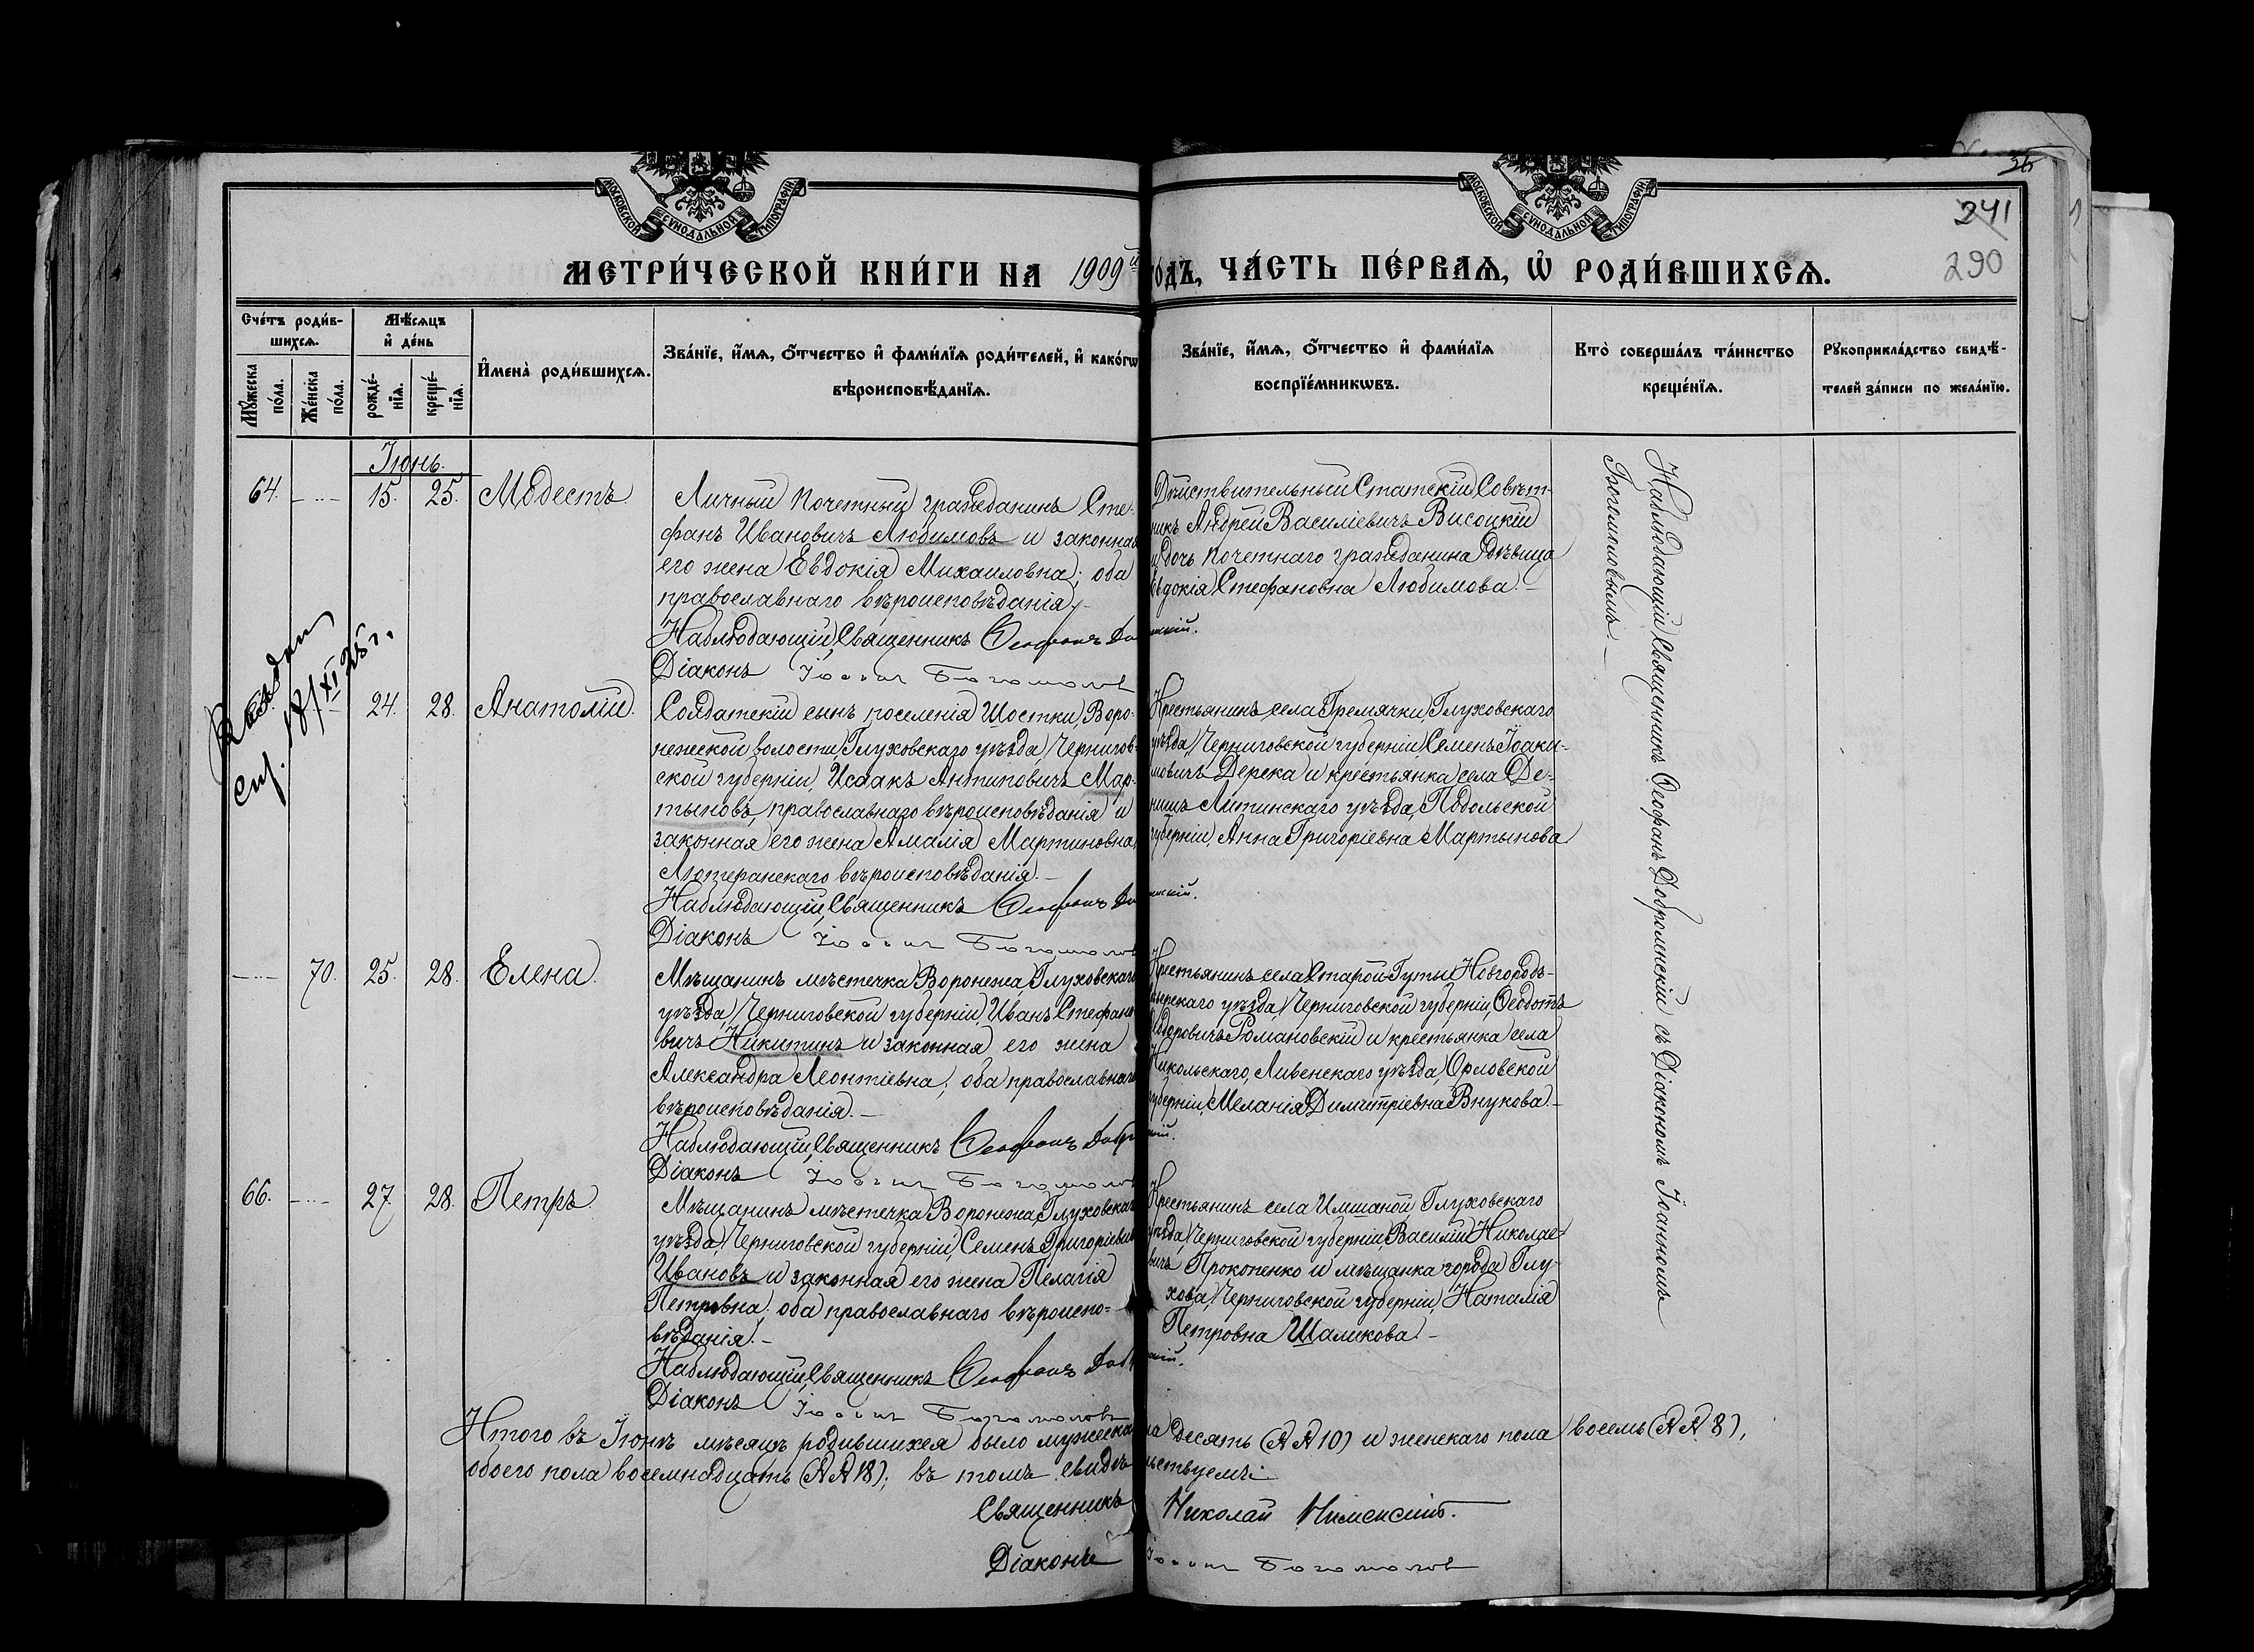 МОСКОВСКОЙ СУНОДАЛЬНОЙ ТИПОГРАФІИ
МОСКОВСКОЙ СУНОДАЛЬНОЙ ТИПОГРАФІИ
241
290
МЕТРИ́ЧЕСКОЙ КНИ́ГИ НА 1909й го́дъ, ЧА́СТЬ ПЕ́РВАѦ, Ѽ РОДИ́ВШИХСѦ.
Сче́тъ роди́в-
шихсѧ.
Мꙋ́жеска по́ла.
Же́нска по́ла.
Мѣ́сѧцъ
и҆ де́нь
рожде́-
нїѧ.
креще́-
нїѧ.
И҆мена̀ роди́вшихсѧ.
Зва́нїе, и҆́мѧ, ѻ҆́тчество и҆ фами́лїѧ роди́телей, и҆ како́гѡ
вѣроисповѣ́данїѧ.
Зва́нїе, и҆́мѧ, ѻ҆́тчество и҆ фами́лїѧ
воспрїе́мникѡвъ.
Кто̀ соверша́лъ та́инство
креще́нїѧ.
Рꙋкоприкла́дство свидѣ́-
телей за́писи по жела́нїю.
Іюнь.
64. 15. 25. Модестъ
Личный почетный гражданинъ Сте-
фанъ Ивановичъ Любимовъ и законная
его жена Евдокія Михаиловна; оба
православнаго вѣроисповѣданія.
Наблюдающій Священникъ Ѳеофанъ
Діаконъ Іоаннъ Богомоловъ
Дѣйствительный Статскій Совѣт-
никъ Андрей Василіевичъ Висоцкій
и дочь почетнаго гражданина дѣвица
Евдокія Стефановна Любимова.
Наблюдающій Священникъ Ѳеофанъ Доброленскій съ Діакономъ Іоанномъ
Богомоловымъ.
18/XI 25 г.
24. 28. Анатолій.
Солдатскій сынъ поселенія Шостки Воро-
нежской волости Глуховскаго уѣзда, Чернигов-
ской губерніи, Исаакъ Антиповичъ Мар-
тыновъ, православнаго вѣроисповѣданія и
законная его жена Амалія Мартиновна,
Лютеранскаго вѣроисповѣданія.
Наблюдающій Священникъ Ѳеофанъ
Діаконъ Іоаннъ Богомоловъ
Крестьянинъ села Гремячки, Глуховскаго
уѣзда, Черниговской губерніи, Семенъ Іоаки-
мовичъ Дерека и крестьянка села Де-
Литинскаго уѣзда, Подольской
губерніи, Анна Григоріевна Мартынова
70. 25. 28. Елена.
Мѣщанинъ мѣстечка Воронежа, Глуховскаго
уѣзда, Черниговской губерніи, Иванъ Стефано-
вичъ Никитинъ и законная его жена
Александра Леонтіевна; оба православнаго
вѣроисповѣданія.
Наблюдающій Священникъ Ѳеофанъ
Діаконъ Іоаннъ Богомоловъ
Крестьянинъ села Старой Гуты Новгородъ-
уѣзда, Черниговской губерніи, Ѳеодотъ
Ѳедоровичъ Романовскій и крестьянка села
Никольскаго, Ливенскаго уѣзда, Орловской
губерніи, Меланія Димитріевна Внукова.
66. 27 28. Петръ.
Мѣщанинъ мѣстечка Воронежа, Глуховскаго
уѣзда, Черниговской губерніи, Семенъ Григоріевичъ
Ивановъ и законная его жена Пелагія
Петровна; оба православнаго вѣроиспо-
вѣданія.
Наблюдающій Священникъ Ѳеофанъ
Діаконъ Іоаннъ Богомоловъ
Крестьянинъ села Имшаной, Глуховскаго
уѣзда, Черниговской губерніи, Василій Николае-
вичъ Прокопенко и мѣщанка города Глу-
хова, Черниговской губерніи, Наталія
Петровна Шаликова.
Итого въ Іюнѣ мѣсяцѣ родившихся было мужеска десять (№ № 10) и женскаго пола восемь (№ № 8),
обоего пола восемнадцать (№ № 18); въ томъ свидѣтельствуемъ:
Священникъ Николай
Діаконъ Іоаннъ Богомоловъ